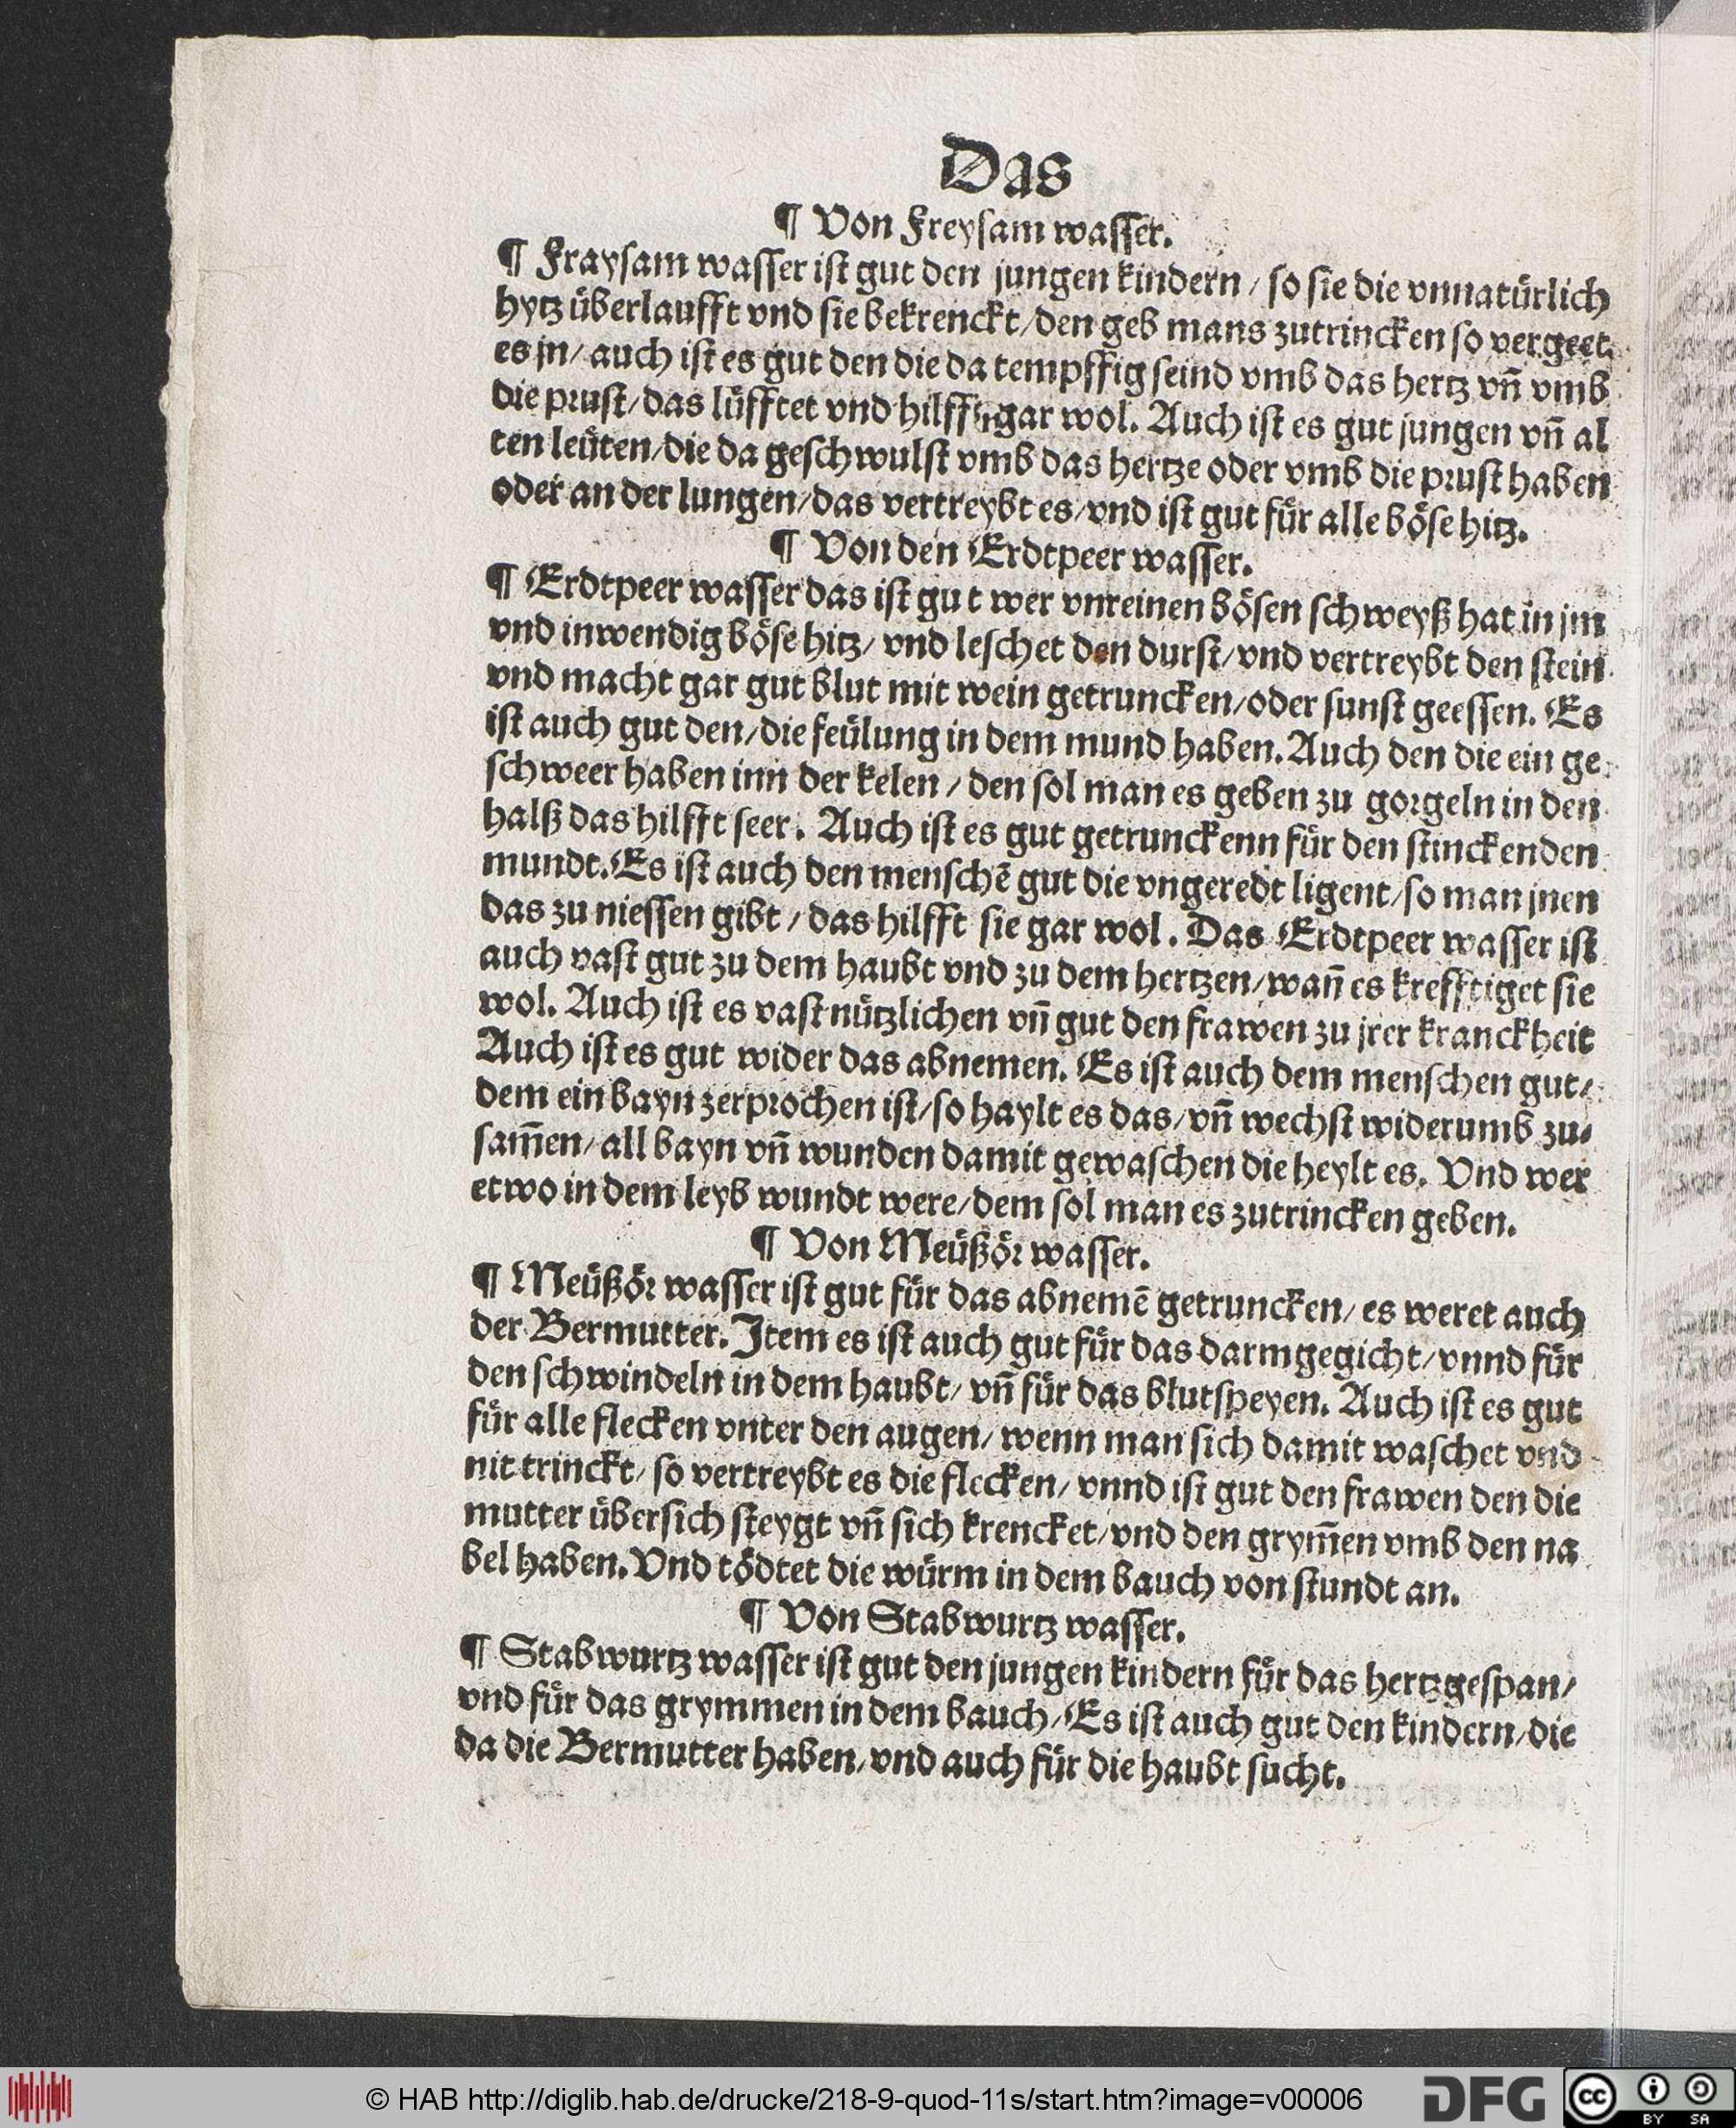 Das
¶ Von Freysam wasser.
¶ Fraysam wasser ist gut den jungen kindern / so sie die vnnatürlich
hytz überlaufft vnd sie bekrenckt / den geb mans zutrincken so vergeet
es jn / auch ist es gut den die da tempffig seind vmb das hertz vñ vmb
die prust / das lüfftet vnd gar wol. Auch ist es gut jungen vñ al
ten leüten / die da geschwulst vmb das hertze oder vmb die prust haben
oder an der lungen / das vertreybt es / vnd ist gut für alle böse hitz.
¶ Von den Erdtpeer wasser.
¶ Erdtpeer wasser das ist gut wer vnreinen bösen schweyß hat in jm
vnd inwendig böse hitz / vnd leschet den durst / vnd vertreybt den stein
vnd macht gar gut blut mit wein getruncken / oder sunst geessen. Es
ist auch gut den / die feülung in dem mund haben. Auch den die ein ge
schweer haben inn der kelen / den sol man es geben zu gorgeln in den
halß das hilfft seer. Auch ist es gut getrunckenn für den stinckenden
mundt. Es ist auch den menschē gut die vngeredt ligent / so man jnen
das zu niessen gibt / das hilfft sie gar wol. Das Erdtpeer wasser ist
auch vast gut zu dem haubt vnd zu dem hertzen / wañ es krefftiget sie
wol. Auch ist es vast nützlichen vñ gut den frawen zu jrer kranckheit
Auch ist es gut wider das abnemen. Es ist auch dem menschen gut /
dem ein bayn zerprochen ist / so haylt es das / vñ wechst widerumb zu⸗
sam̃en / all bayn vñ wunden damit gewaschen die heylt es. Vnd wer
etwo in dem leyb wundt were / dem sol man es zutrincken geben.
¶ Von Meüßör wasser.
¶ Meüßör wasser ist gut für das abnemē getruncken / es weret auch
der Bermutter. Item es ist auch gut für das darmgegicht / vnnd für
den schwindeln in dem haubt / vñ für das blutspeyen. Auch ist es gut
für alle flecken vnter den augen / wenn man sich damit waschet vnd
nit trinckt / so vertreybt es die flecken / vnnd ist gut den frawen den die
mutter übersich steygt vñ sich krencket / vnd den grym̃en vmb den na
bel haben. Vnd tödtet die würm in dem bauch von stundt an.
¶ Von Stabwurtz wasser.
¶ Stabwurtz wasser ist gut den jungen kindern für das hertzgespan /
vnd für das grymmen in dem bauch / Es ist auch gut den kindern / die
da die Bermutter haben / vnd auch für die haubt sucht.
© HAB http://diglib.hab.de/drucke/218-9-quod-11s/start.htm?image=v00006
DFG
cc BY SA